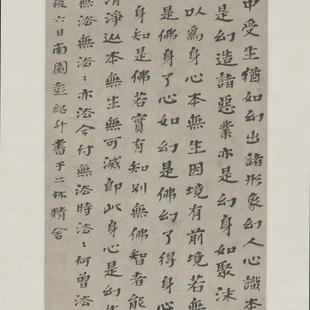 中受生猶如幻出諸形象幻人心識本
是幻造諸惡業亦是幻身如聚沫
以為身心本無生因境有前境若無
是佛身了心如幻是佛幻了得身心
身知是佛若實有知別無佛智者能
清淨從本無生無可滅即此身心是幻生
無法無法〻亦法今付無法時法〻何曾法
六日南園彭紹升書于二林精舍